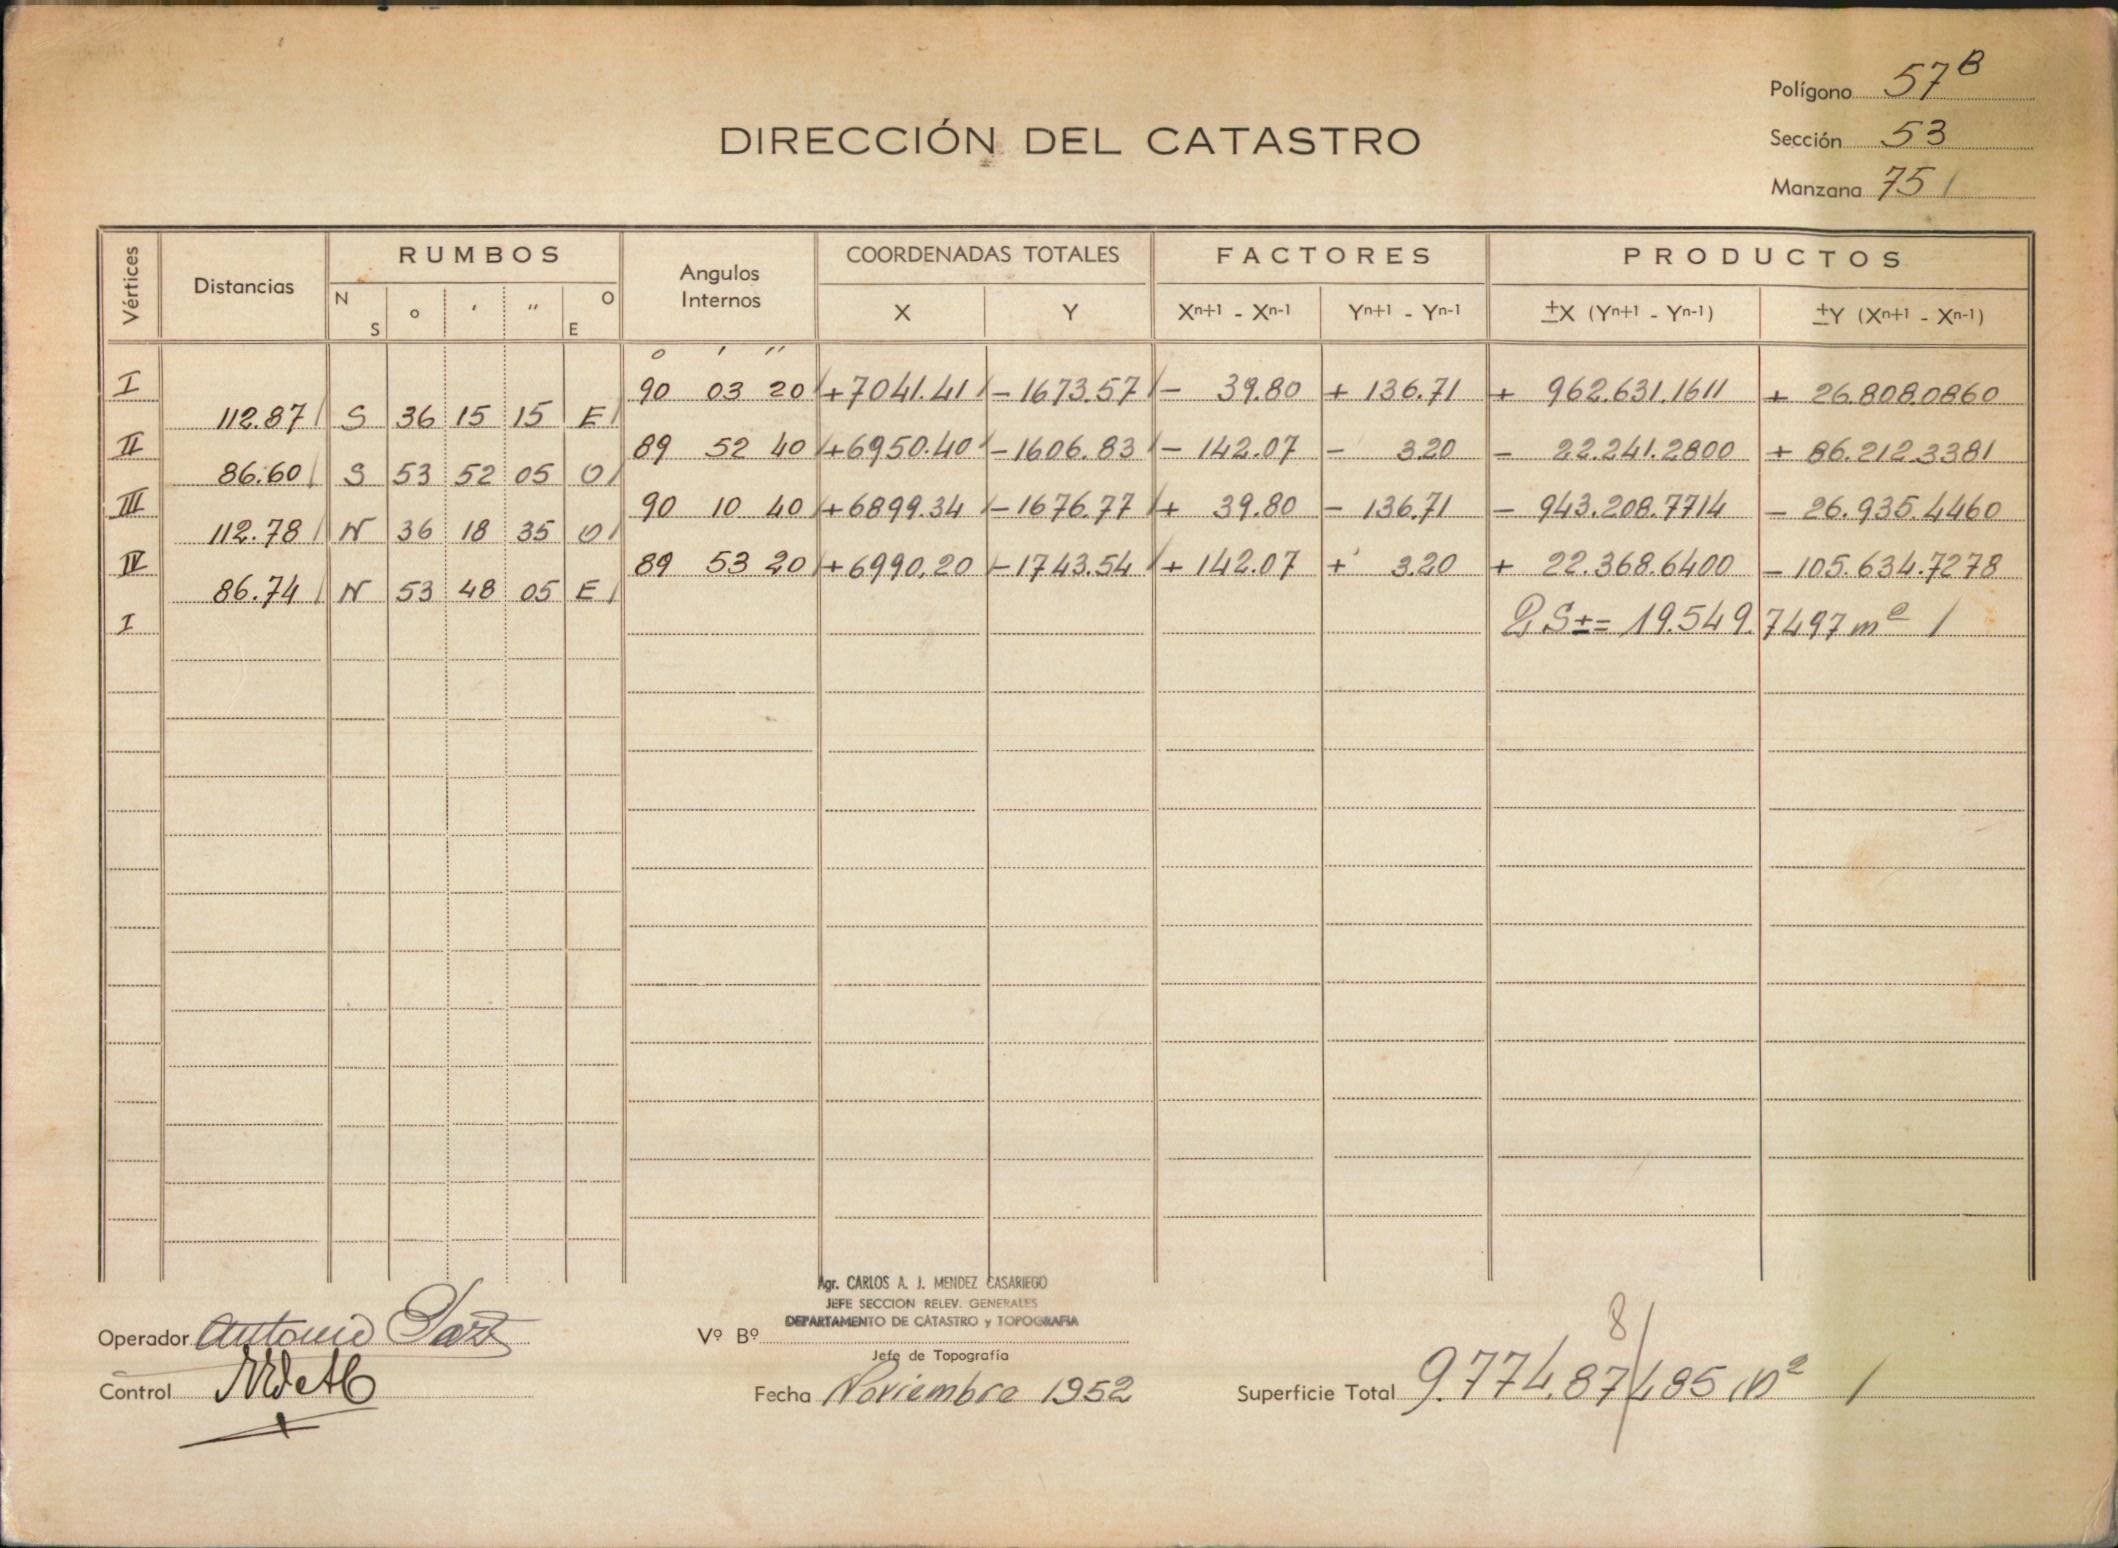 Polígono 57 B
DIRECCIÓN DEL CATASTRO
Sección 53
Manzana 751
Vértices Distancias RUMBOS Angulos Internos COORDENADAS TOTALES FACTORES PRODUCTOS
N S o ' " O E X Y Xn+1 - Xn-1 Yn+1 - Yn-1 ±X (Yn+1 - Yn-1) ±Y (Xn+1 - Xn-1)
o ' "
I 90 03 20 +7041.41 -1673.57 - 39.80 + 136.71 + 962.631.1611 + 26.808.0860
112.87 S 36 15 15 E
II 89 52 40 +6950.40 -1606.83 - 142.07 - 3.20 - 22.241.2800 + 86.212.3381
86.60 S 53 52 05 O
III 90 10 40 +6899.34 -1676.77 + 39.80 - 136.71 - 943.208.7714 - 26.935.4460
112.78 N 36 18 35 O
IV 89 53 20 +6990.20 -1743.54 + 142.07 + 3.20 + 22.368.6400 - 105.634.7278
86.74 N 53 48 05 E
I 2 S ± = 19.549.7497 m2
Agr. CARLOS A. J. MENDEZ CASARIEGO
JEFE SECCION RELEV. GENERALES
DEPARTAMENTO DE CATASTRO y TOPOGRAFIA
Operador Antonio
Vº Bº
Jefe de Topografía
8
Control
Fecha Noviembre 1952
Superficie Total 9.774.87485 m2